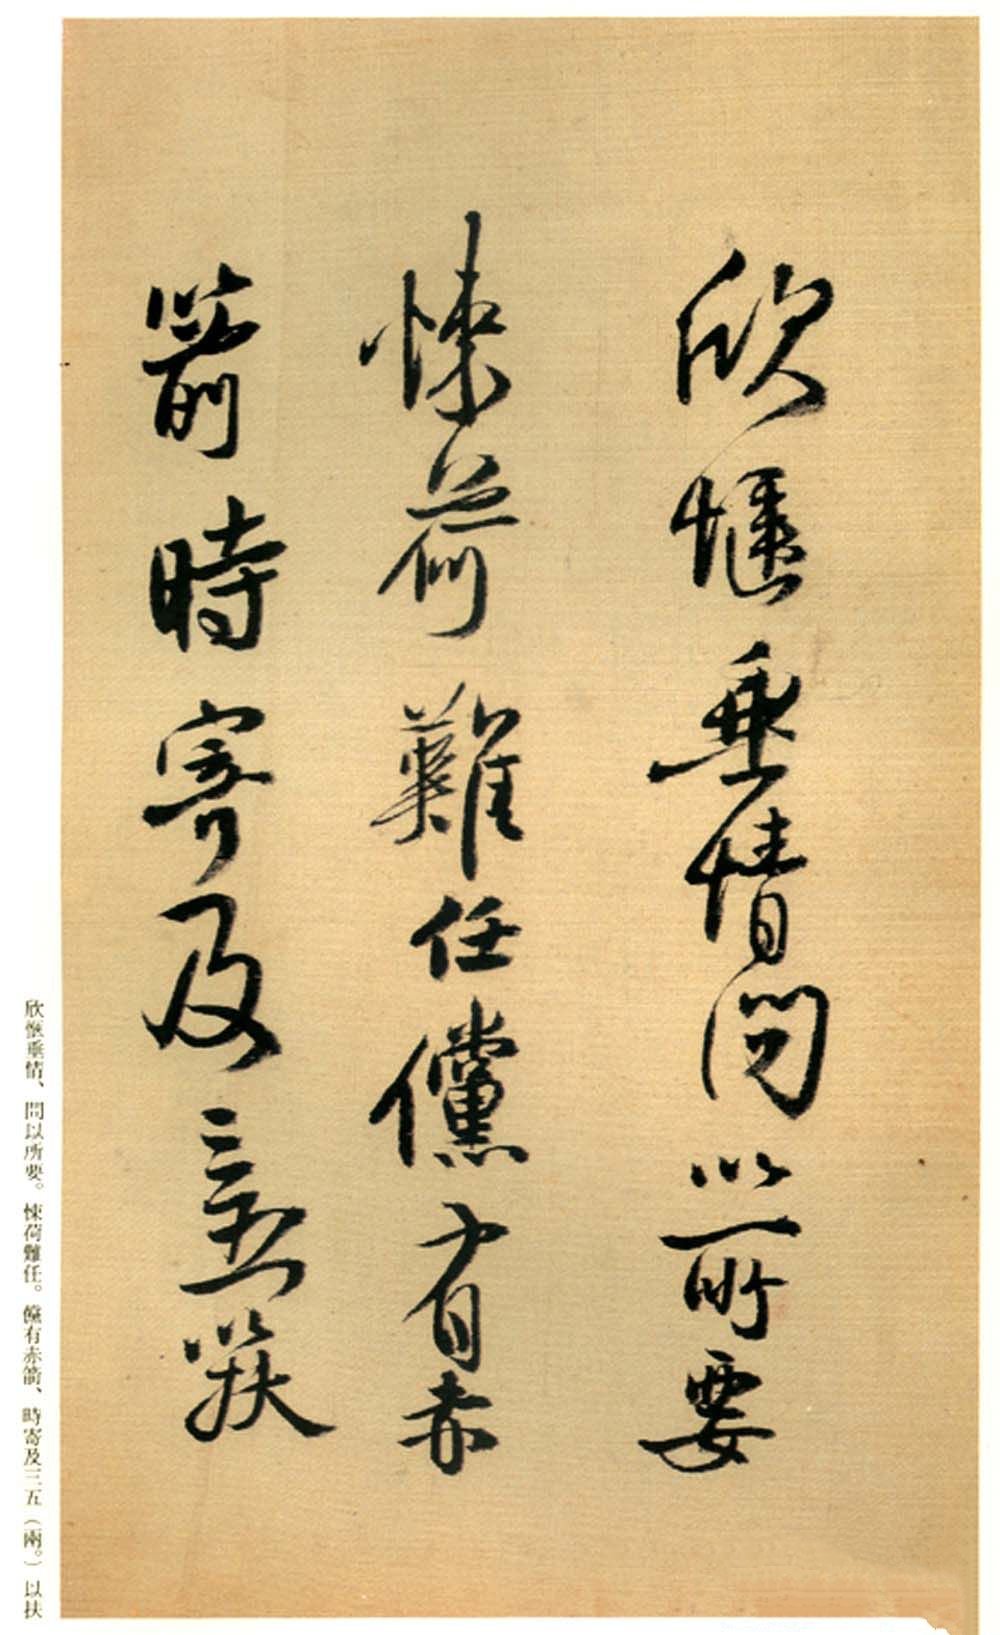 欣愜垂情問以所要
悚荷難任儻有赤
箭時寄及三五以扶
欣愜垂情、問以所要。悚荷難任。儻有赤箭、時寄及三五（兩。）以扶